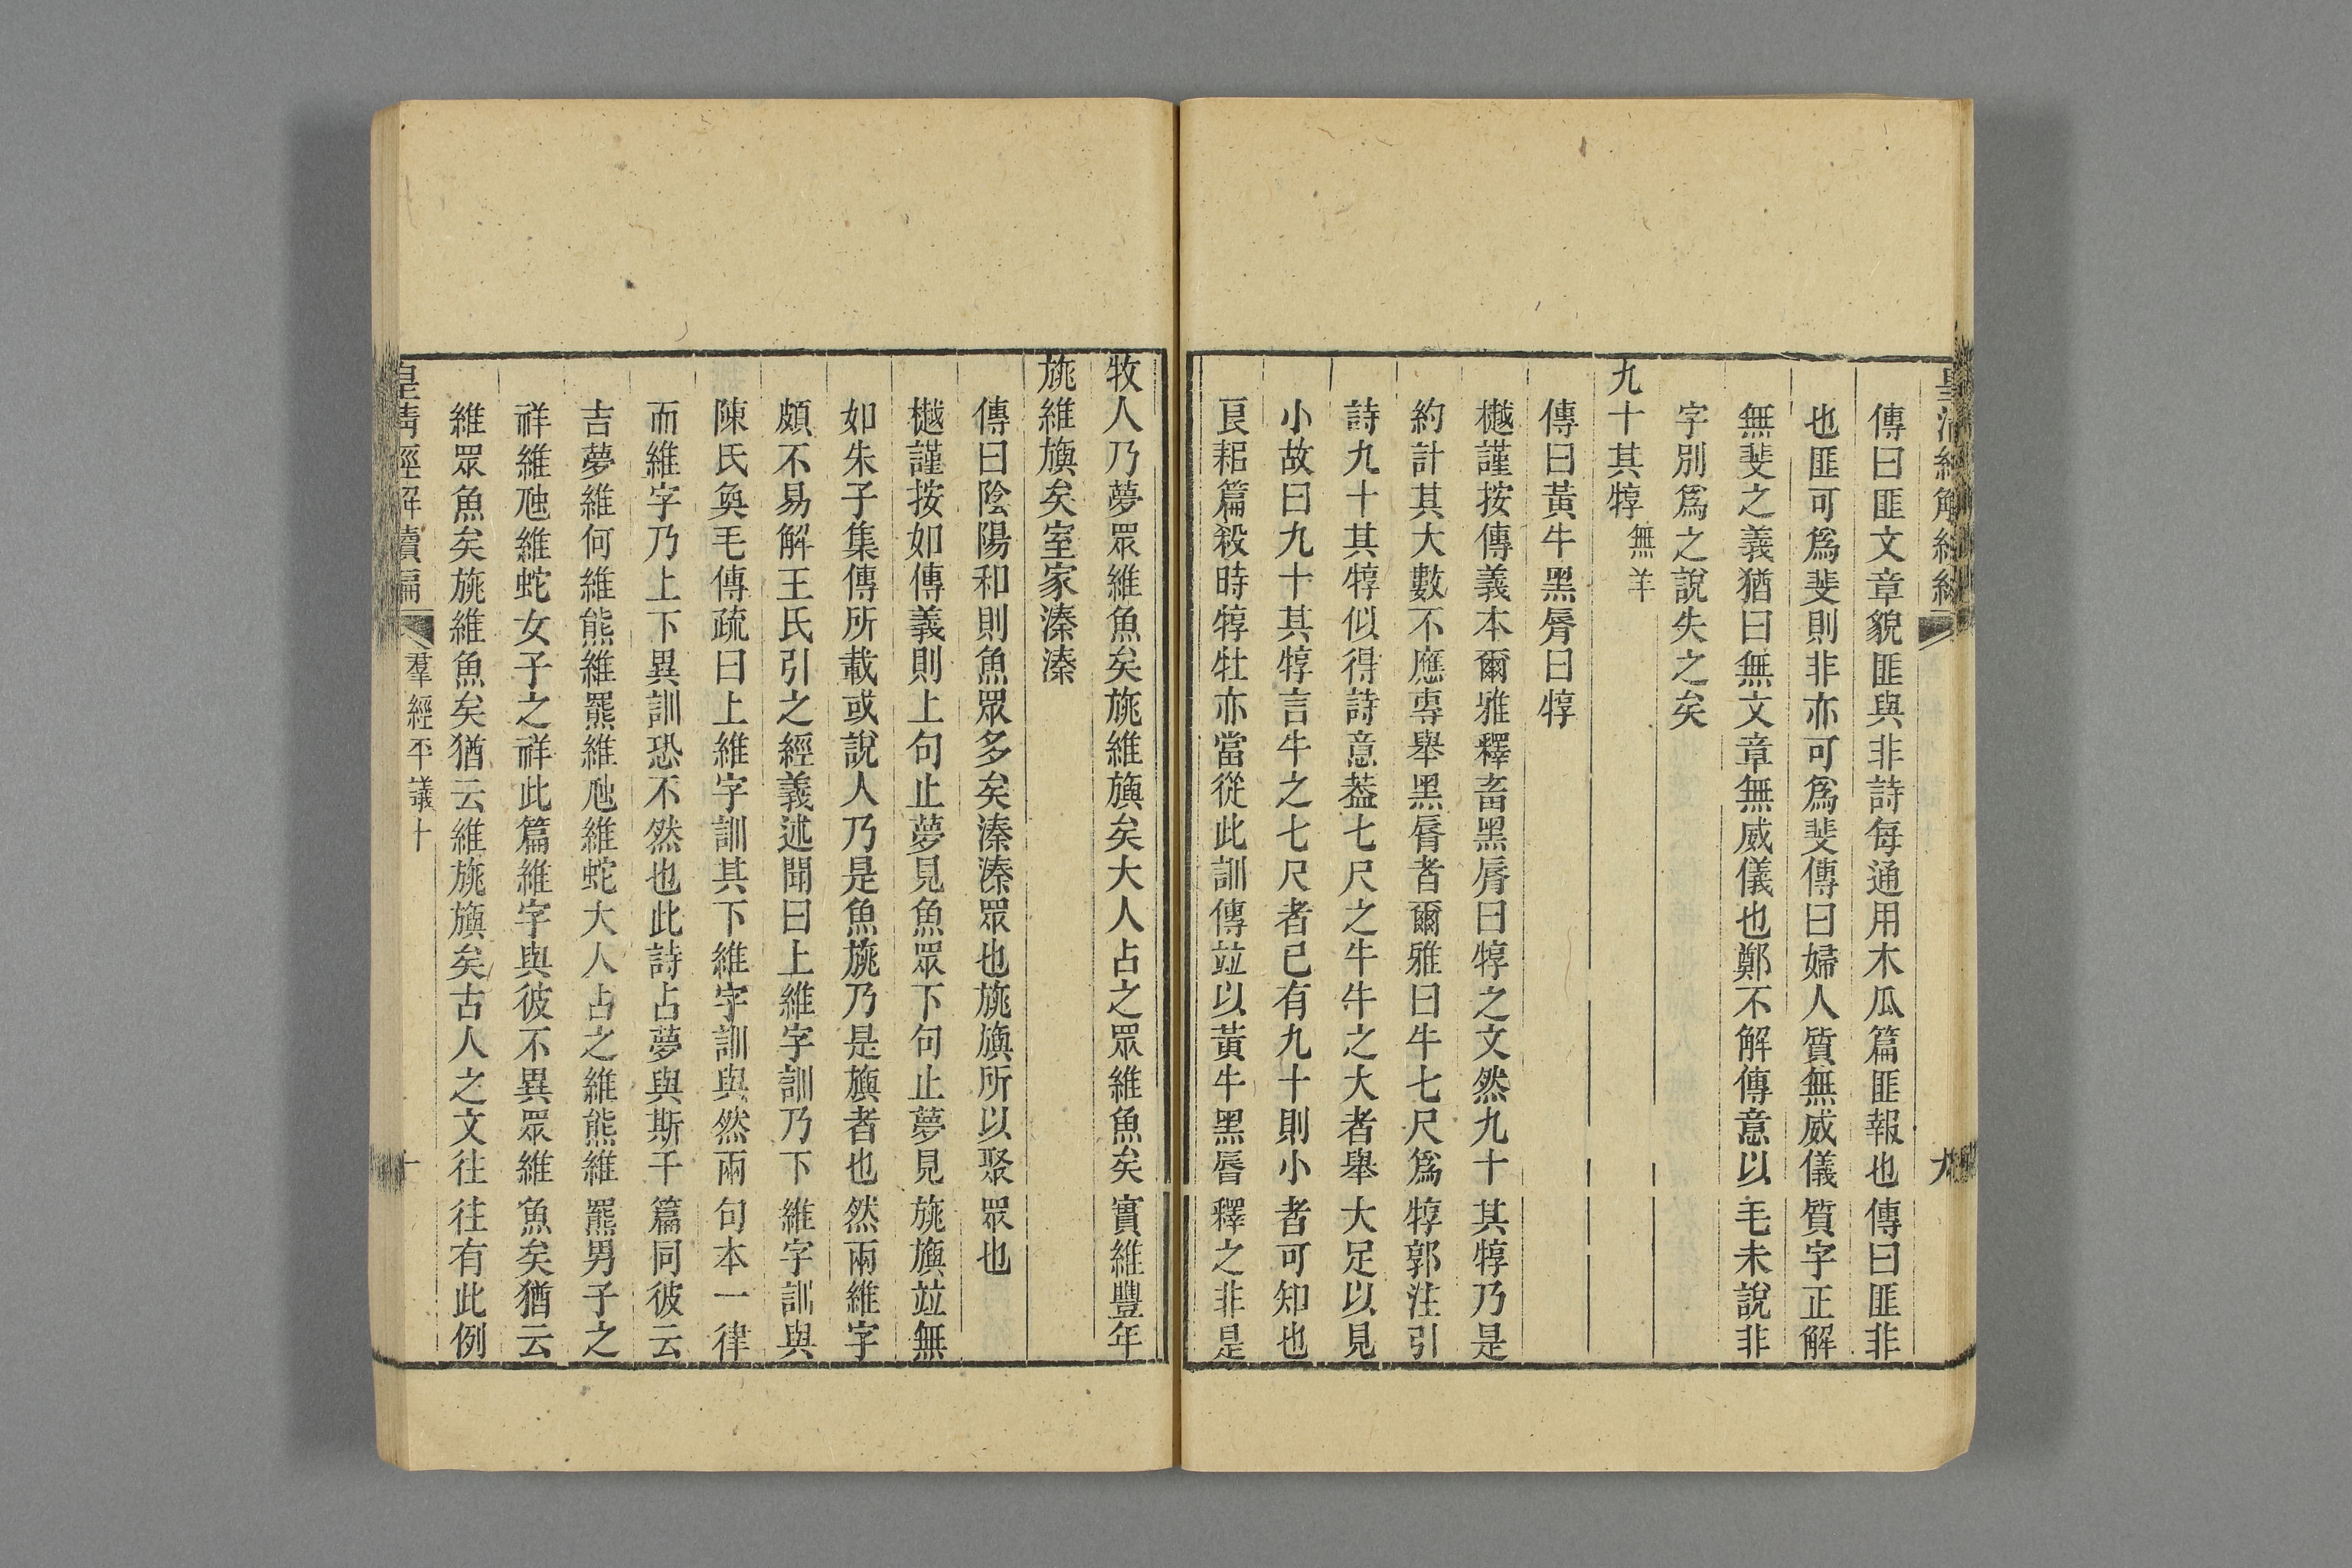 傳曰匪文章貌匪與非詩每通用木瓜篇匪報也傳曰匪非
也匪可爲斐則非亦可爲斐傳曰婦人質無威儀質字正解
無斐之義猶曰無文章無威儀也鄭不解傳意以毛未說非
字別爲之說失之矣
九十其犉無羊
傳曰黃牛黑脣曰犉
樾謹按傳義本爾雅釋畜黑脣曰犉之文然九十其犉乃是
約計其大數不應專舉黑脣者爾雅曰牛七尺爲犉郭注引
詩九十其犉似得詩意葢七尺之牛牛之大者舉大足以見
小故曰九十其犉言牛之七尺者已有九十則小者可知也
良耜篇殺時犉牡亦當從此訓傳竝以黃牛黑脣釋之非是
牧人乃夢眾維魚矣旐維旟矣大人占之眾維魚矣實維豐年
旐維旟矣室家溱溱
傳曰陰陽和則魚眾多矣溱溱眾也旐旟所以聚眾也
樾謹按如傳義則上句止夢見魚眾下句止夢見旐旟竝無
如朱子集傳所載或說人乃是魚旐乃是旟者也然兩維字
頗不易解王氏引之經義述聞曰上維字訓乃下維字訓與
陳氏奐毛傳疏曰上維字訓其下維字訓與然兩句本一律
而維字乃上下異訓恐不然也此詩占夢與斯干篇同彼云
吉夢維何維熊維羆維虺維蛇大人占之維熊維羆男子之
祥維虺維蛇女子之祥此篇維字與彼不異眾維魚矣猶云
維眾魚矣旐維魚矣猶云維旐旟矣古人之文往往有此例
皇清經解續編 羣經平議十